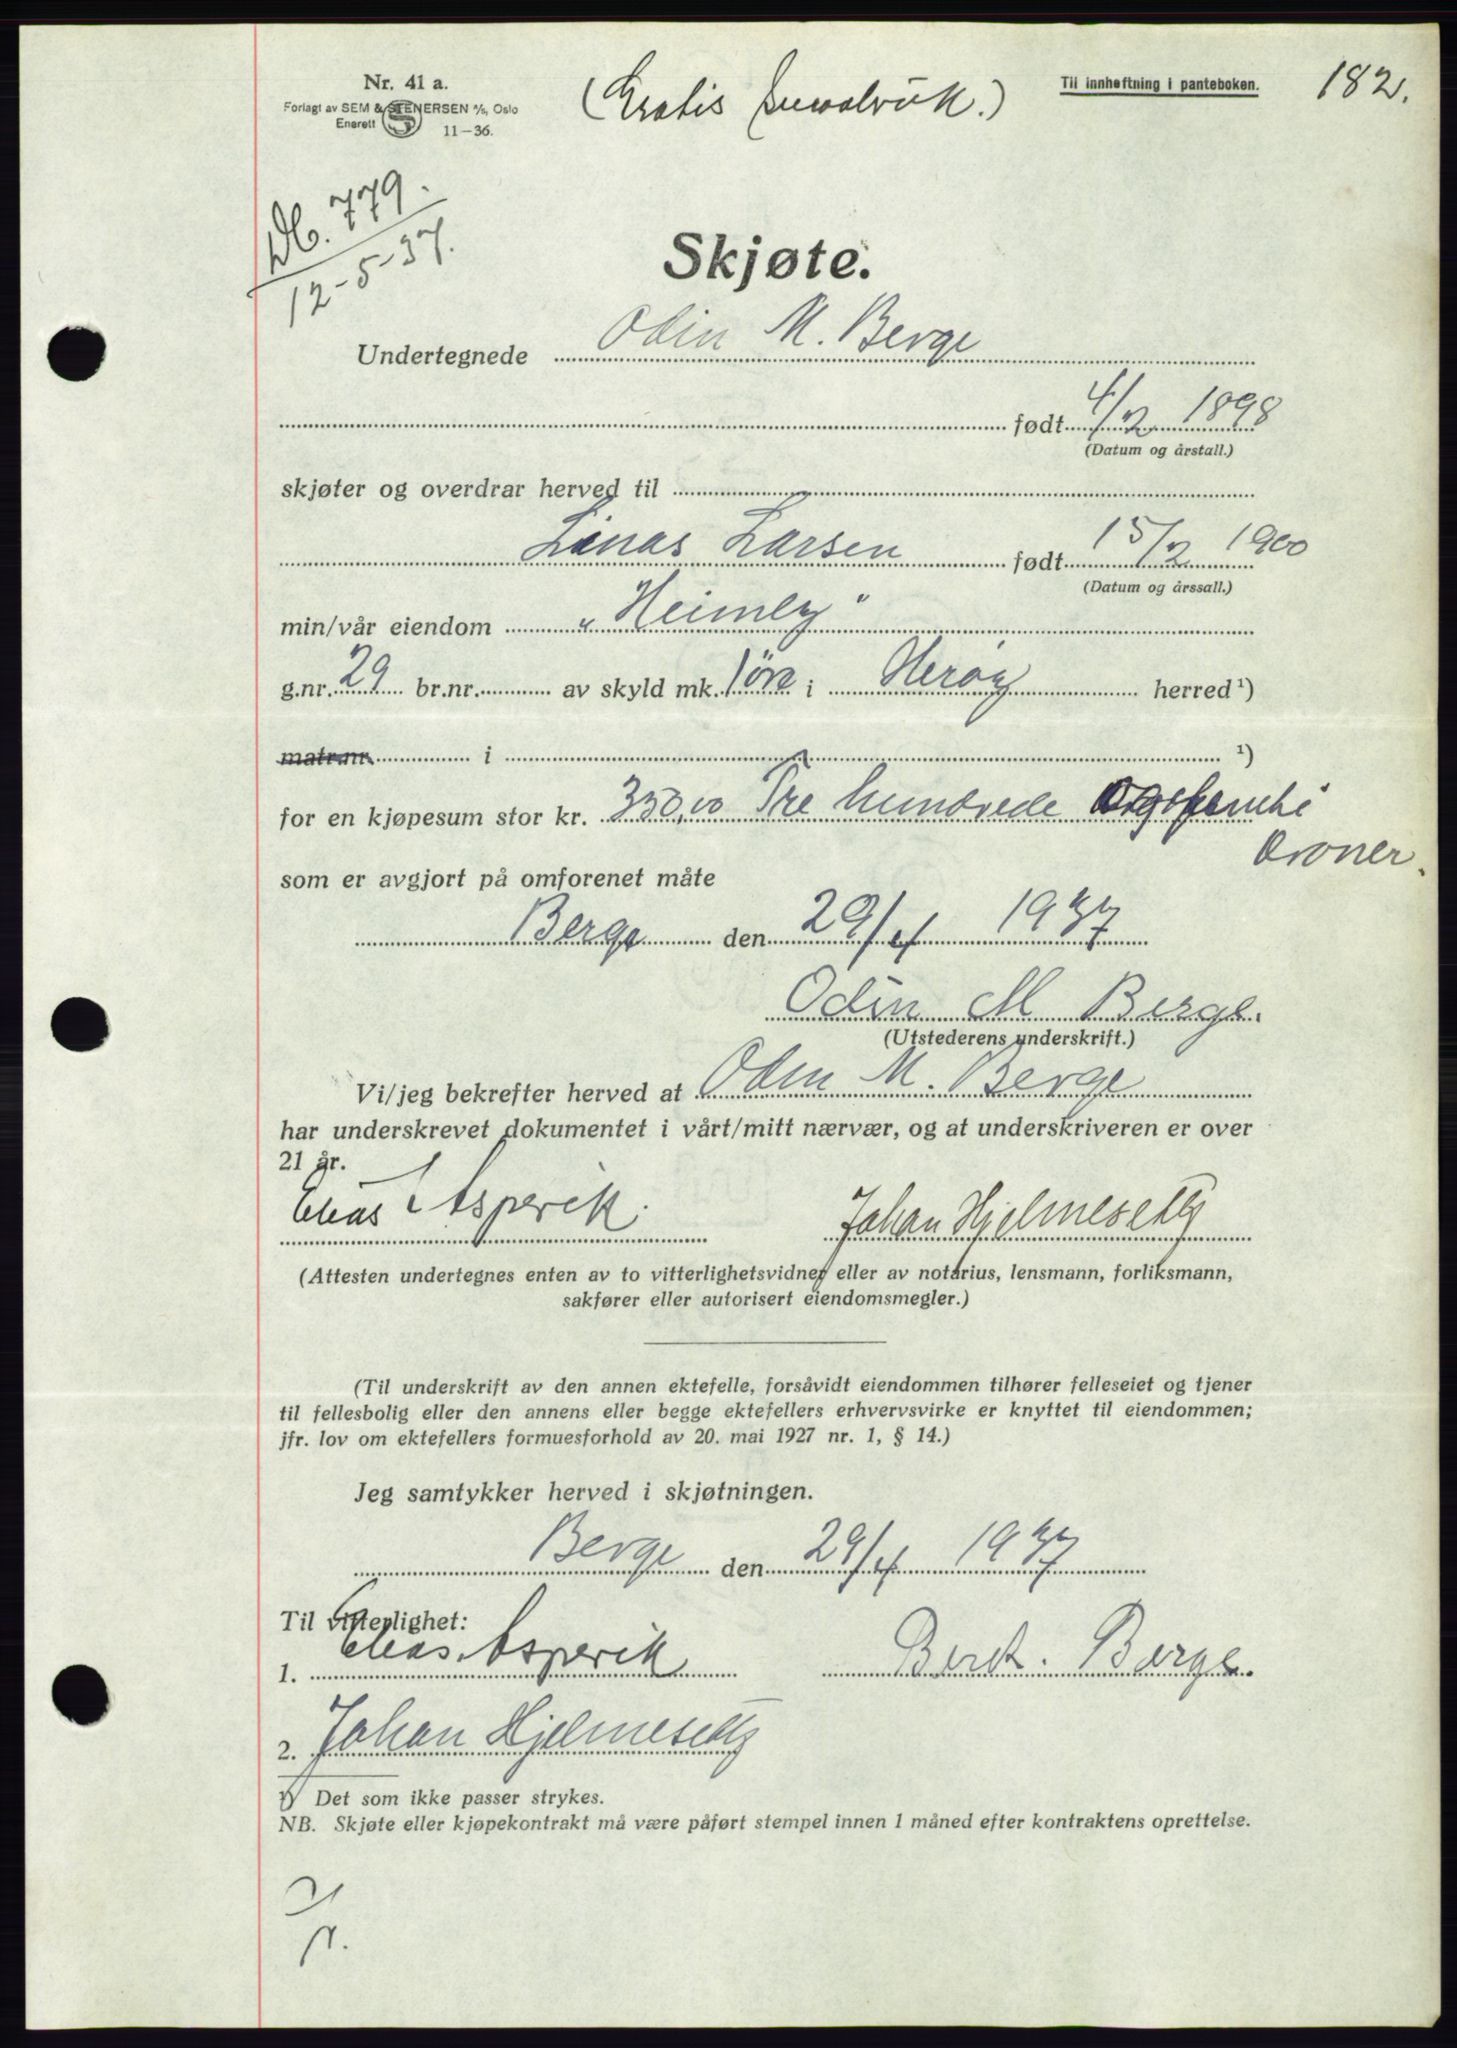 Nr. 41 a.
Forlagt av SEM & STENERSEN A/S, Oslo
Enerett 11-36.
(Gratis
Til innheftning i panteboken.
182.
Db. 779.
12-5-37.
Skjøte.
Undertegnede Odin M. Berge
født 4/2 1898
(Datum og årstall.)
skjøter og overdrar herved til
Linas Larsen født 15/2 1900
(Datum og årssall.)
min/vår eiendom „Heimly"
g.nr. 29 br.nr. av skyld mk. 1 øre i Herøy herred ¹)
matr.nr. i ¹)
for en kjøpesum stor kr. 350,00 Tre hundrede og femti
kroner.
som er avgjort på omforenet måte
Berge den 29/4 1937
Odin M Berge.
(Utstederens underskrift.)
Vi/jeg bekrefter herved at Odin M. Berge
har underskrevet dokumentet i vårt/mitt nærvær, og at underskriveren er over
21 år.
Elias Asperik. Johan Hjelmeseth
(Attesten undertegnes enten av to vitterlighetsvidner eller av notarius, lensmann, forliksmann,
sakfører eller autorisert eiendomsmegler.)
(Til underskrift av den annen ektefelle, forsåvidt eiendommen tilhører felleseiet og tjener
til fellesbolig eller den annens eller begge ektefellers erhvervsvirke er knyttet til eiendommen;
jfr. lov om ektefellers formuesforhold av 20. mai 1927 nr. 1, § 14.)
Jeg samtykker herved i skjøtningen.
Berge den 29/4 1937
Til vitterlighet:
1. Elias Asperik Berck. Berge.
2. Johan Hjelmeseth
¹) Det som ikke passer strykes.
NB. Skjøte eller kjøpekontrakt må være påført stempel innen 1 måned efter kontraktens oprettelse.